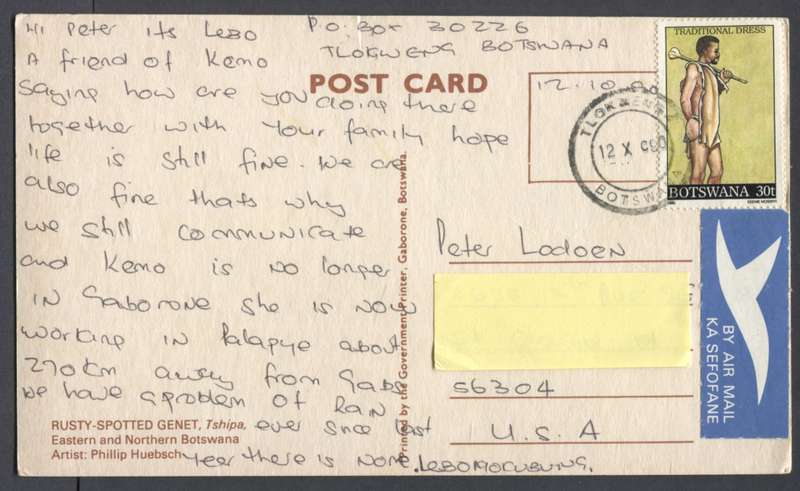 Hi Peter its Lebo
A friend of Kemo
Saying how are you doing there
together with your family hope
life is still fine. We are
also fine thats why
we still communicate
and Kemo is no longer
in Gaborone she is now
working in Palapye about
270km away from Gabs
We have a problem of Rain
ever since last
Year there is none. LEBO MOKUBUNG.
P.O. Box 30226
TLOKWENG BOTSWANA
POST CARD
12.10.00
TLOKWENG
12 X
BOTSWA
TRADITIONAL DRESS
BOTSWANA 30t
Peter Lodoen
56304
U.S.A
BY AIR MAIL
KA SEFOFANE
Printed by the Government Printer, Gaborone, Botswana.
RUSTY-SPOTTED GENET, Tshipa,
Eastern and Northern Botswana
Artist: Phillip Huebsch